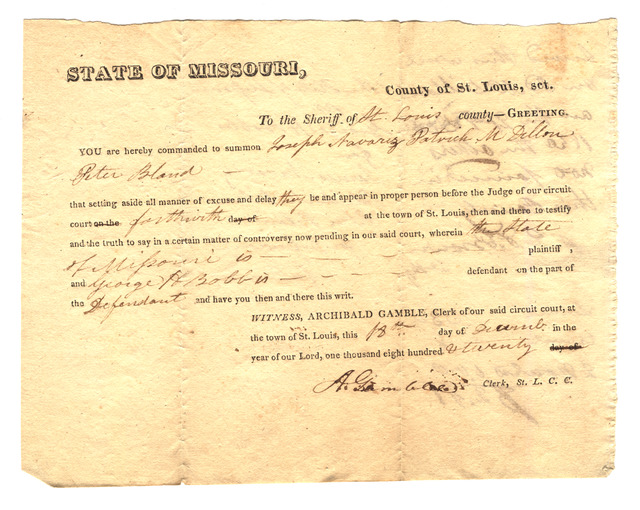 STATE OF MISSOURI,
County of St. Louis, sct.
To the Sheriff of St. Louis county—GREETING.
YOU are hereby commanded to summon Joseph Navariz Patrick M Dillon
Peter Bland —
that setting aside all manner of excuse and delay they be and appear in proper person before the Judge of our circuit
court on the forthwith day of at the town of St. Louis, then and there to testify
and the truth to say in a certain matter of controversy now pending in our said court, wherein the State
of Missouri is — — — — — plaintiff,
and George H Bobb is — — — — defendant on the part of
the Defendant and have you then and there this writ.
WITNESS, ARCHIBALD GAMBLE, Clerk of our said circuit court, at
the town of St. Louis, this 18th day of in the
year of our Lord, one thousand eight hundred & twenty day of
A. Gamble Clerk, St. L. C. C.